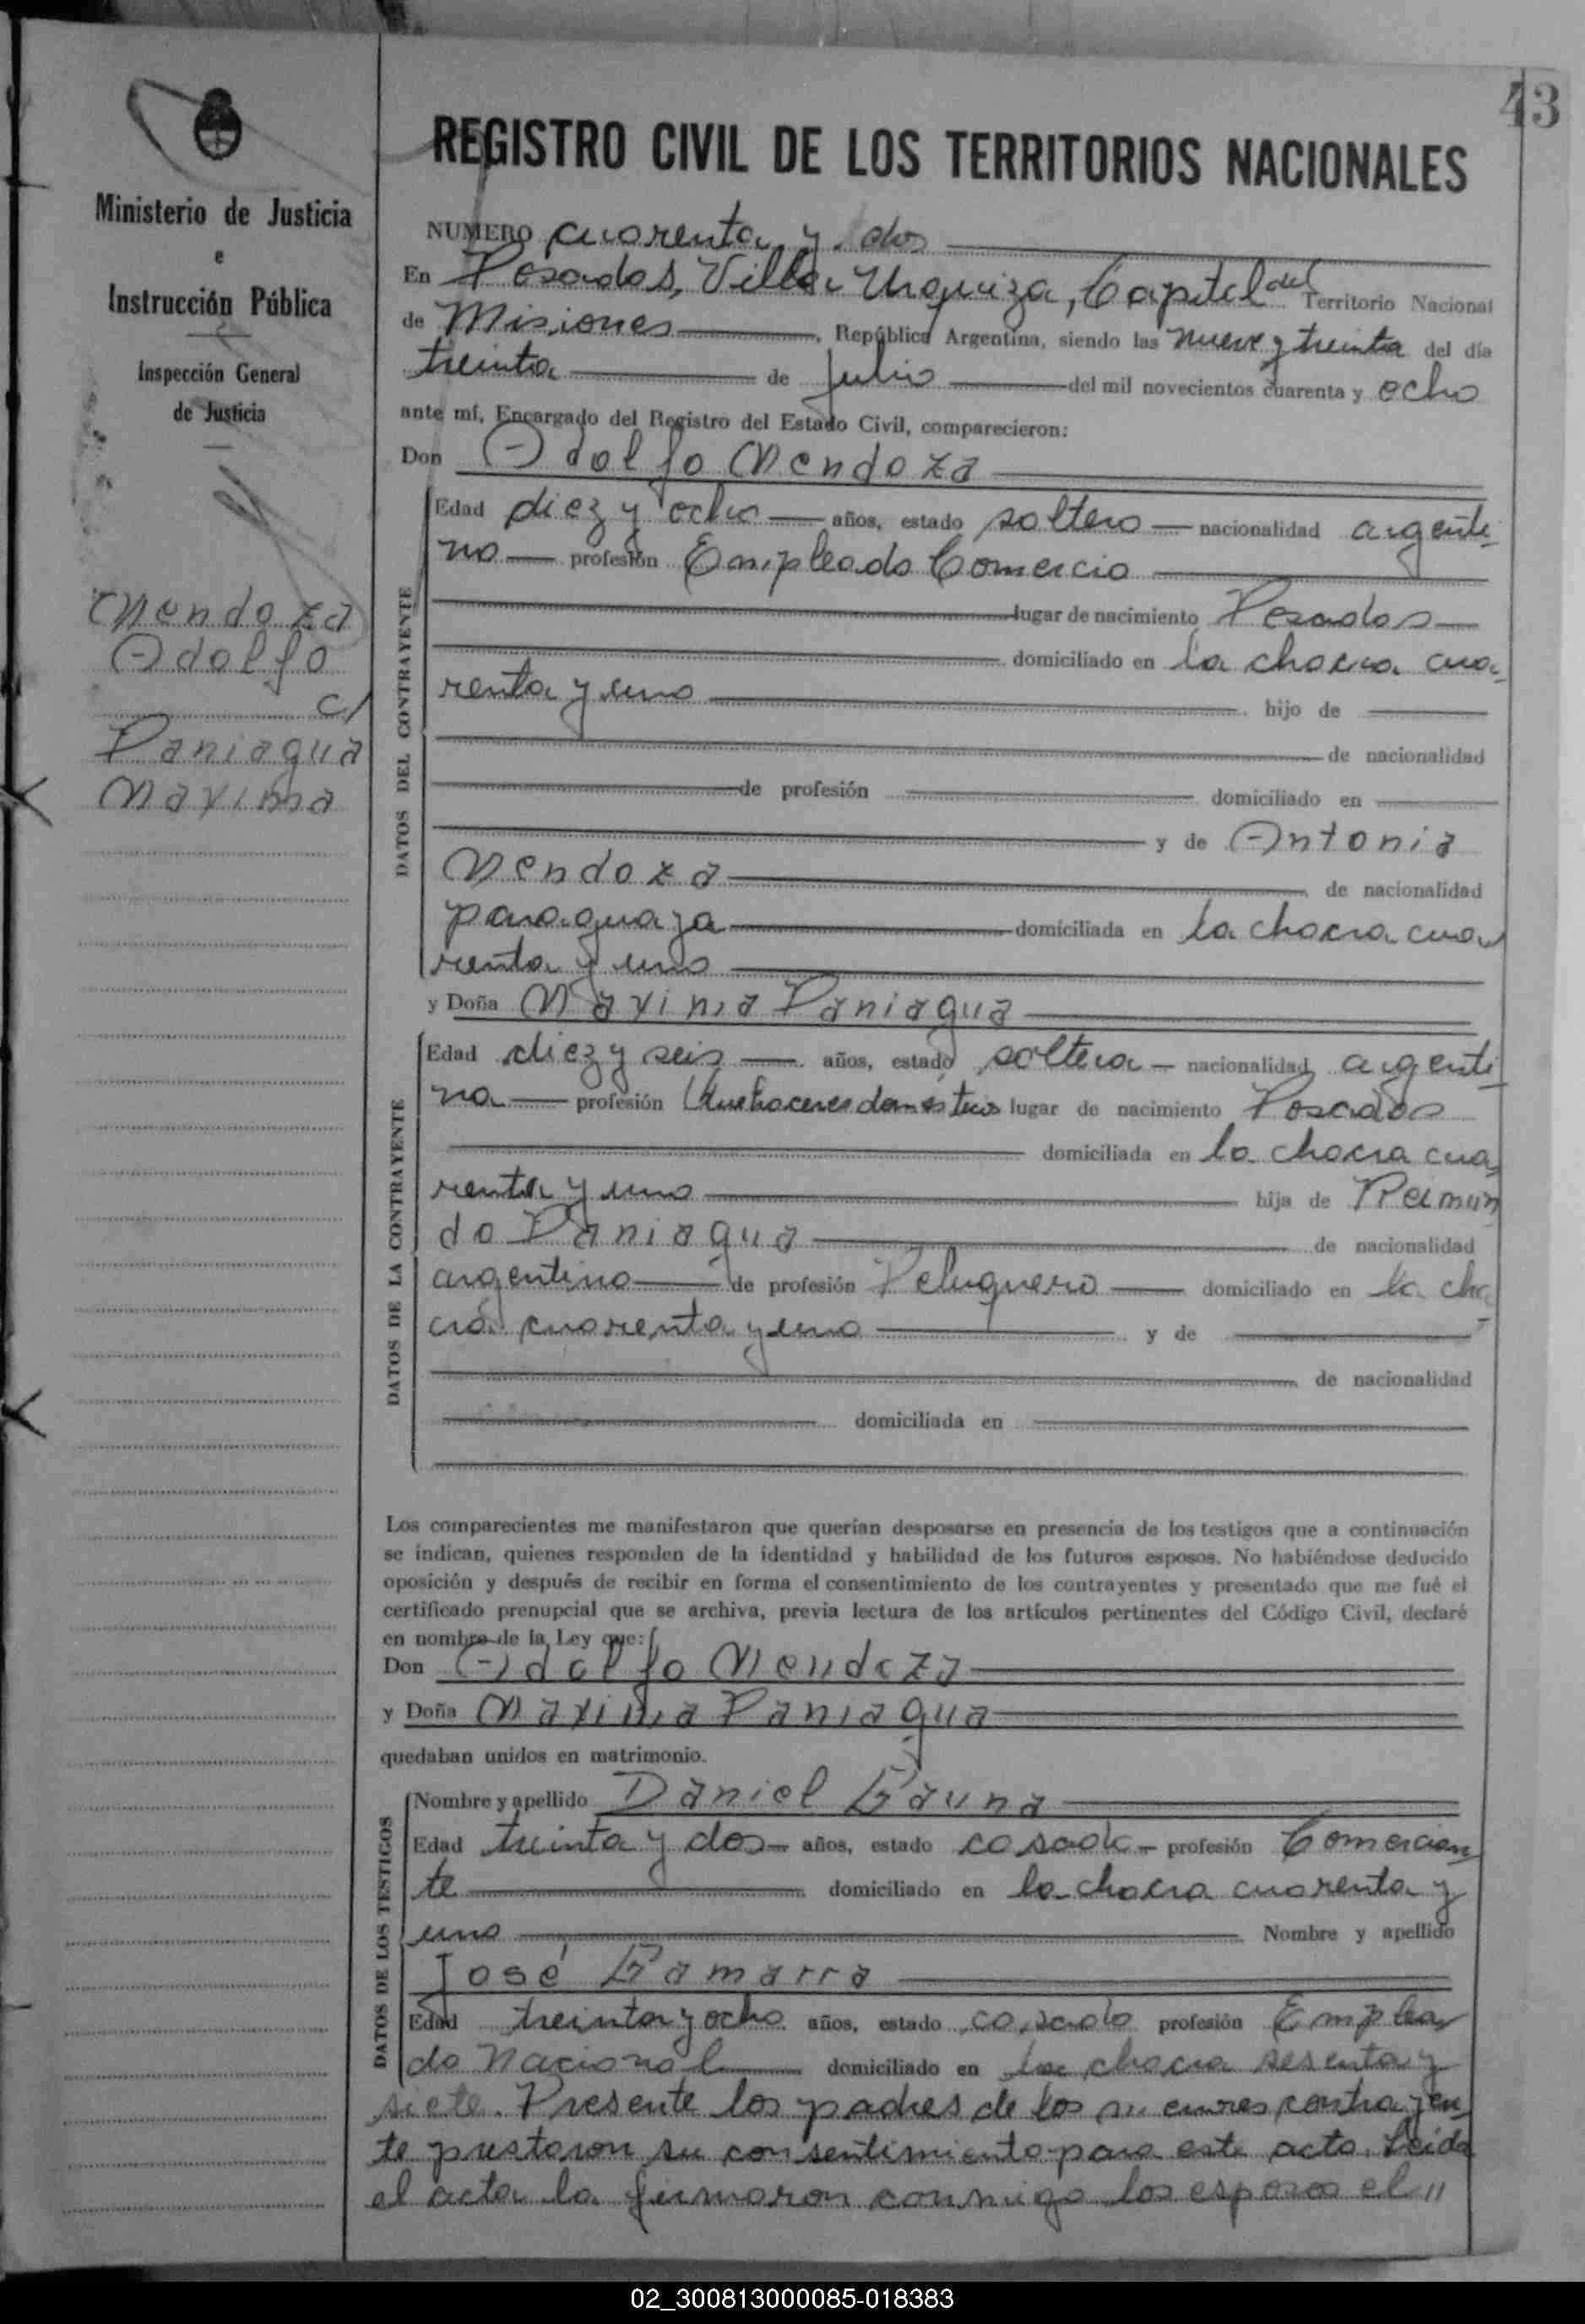 43
Ministerio de Justicia
e
Instrucción Pública
Inspección General
de Justicia
Mendoza
Adolfo
c/
Paniagua
Maxima
REGISTRO CIVIL DE LOS TERRITORIOS NACIONALES
NUMERO cuarenta y dos
En Posadas, Villa Urquiza, Capital del Territorio Nacional
de Misiones, República Argentina, siendo las nueve y treinta del día
treinta de Julio del mil novecientos cuarenta y ocho
ante mí, Encargado del Registro del Estado Civil, comparecieron:
Don Adolfo Mendoza
DATOS DEL CONTRAYENTE
Edad diez y ocho años, estado soltero nacionalidad argenti-
no profesión Empleado Comercio
lugar de nacimiento Posadas
domiciliado en la chacra cua-
renta y uno hijo de
de nacionalidad
de profesión domiciliado en
y de Antonia
Mendoza de nacionalidad
paraguaya domiciliada en la chacra cua-
renta y uno
y Doña Maxima Paniagua
DATOS DE LA CONTRAYENTE
Edad diez y seis años, estado soltera nacionalidad argenti-
na profesión Quehaceres domésticos lugar de nacimiento Posadas
domiciliada en la chacra cua-
renta y uno hija de Reimun
do Paniagua de nacionalidad
argentino de profesión Peluquero domiciliado en la cha-
cra cuarenta y uno y de
de nacionalidad
domiciliada en
Los comparecientes me manifestaron que querían desposarse en presencia de los testigos que a continuación
se indican, quienes responden de la identidad y habilidad de los futuros esposos. No habiéndose deducido
oposición y después de recibir en forma el consentimiento de los contrayentes y presentado que me fué el
certificado prenupcial que se archiva, previa lectura de los artículos pertinentes del Código Civil, declaré
en nombre de la Ley que:
Don Adolfo Mendoza
y Doña Maxima Paniagua
quedaban unidos en matrimonio.
DATOS DE LOS TESTIGOS
Nombre y apellido Daniel Gauna
Edad treinta y dos años, estado casado profesión Comercian
te domiciliado en la chacra cuarenta y
uno Nombre y apellido
José Gamarra
Edad treinta y ocho años, estado casado profesión Emplea
do Nacional domiciliado en la chacra sesenta y
siete. Presente los padres de los menores contrayen
te prestaron su consentimiento para este acto. Leida
el acta la firmaron conmigo los esposos el "
02_300813000085-018383